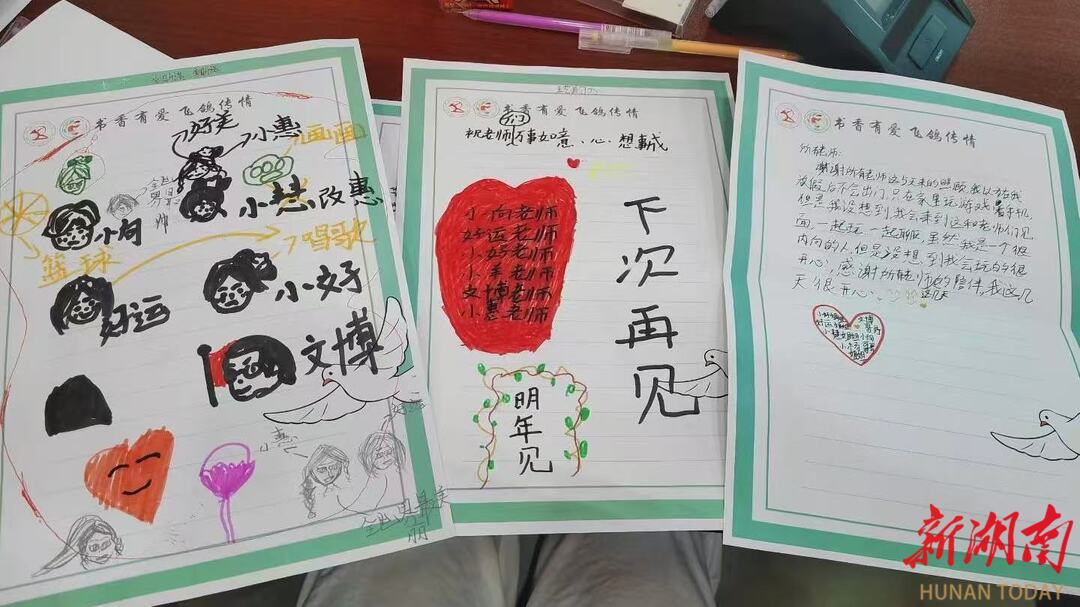 书香有爱 飞鸽传情
好美
小惠
画画
小慧改惠
帅
小向
篮球
唱歌
好运
小好
文博
小惠
书香有爱 飞鸽传情
祝老师们万事如意、心想事成
小向老师
好运老师
小好老师
小羊老师
文博老师
小惠老师
下次再见
明年见
书香有爱 飞鸽传情
所有老师:
谢谢所有老师这5天来的照顾,我以为我
放假后不会出门,只在家里玩游戏看手机,
但是我没想到,我会来到这和老师们见
面,一起玩,一起聊天,虽然我是一个很
内向的人,但是没想到我会玩的很
开心,感谢所有老师的陪伴,我这几
天很开心,
文博
新湖南
HUNAN TODAY